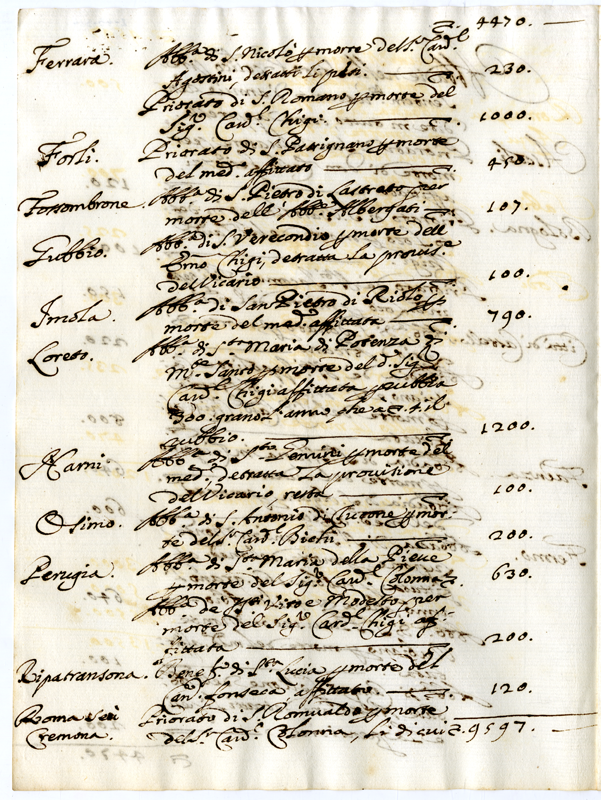 4470.
Ferrara. Abb.a di S. Nicolò p morte del S.r Card.l
Agostini, detratti li pesi. 230.
Priorato di S. Romano p morte del
Sig.r Card.l Chigi. 1000.
Forlì. Priorato di S. Passignano p morte
del med.o affittato 450.
Fossombrone. Abb.a di S. Pietro di per
morte dell' Abb.e Albergati 107.
Gubbio. Abb.a di S. Verecondio p morte dell'
Emo Chigi, detratta la provis.e
del Vicario 100.
Imola. Abb.a di San Pietro di Riolo p
morte del med.o affittata 790.
Loreto. Abb.a di S.ta Maria di Potenza
M.te Santo p morte del d.o Sig.r
Card.l Chigi affittata
300. grano anno
Gubbio. 1200.
Narni. Abb.a di p morte del
med.o detratta la provisione
del Vicario resta 100.
Osimo. Abb.a di S. Antonio di p mor-
te del S.r Card.l Bichi. 200.
Perugia. Abb.a di S.ta Maria della Pieve
p morte del Sig.r Card.l Colonna 630.
Abb.a de SS.ti Vito e Modesto per
morte del Sig.r Card.l Chigi af-
fittata 200.
Ripatransona. Benef.o di S.ta Lucia p morte del
Can.o Fonseca affittato 120.
Roma seu Priorato di S. Romualdo p morte
Cremona. del S.r Card.l Colonna, li di cui 9597.